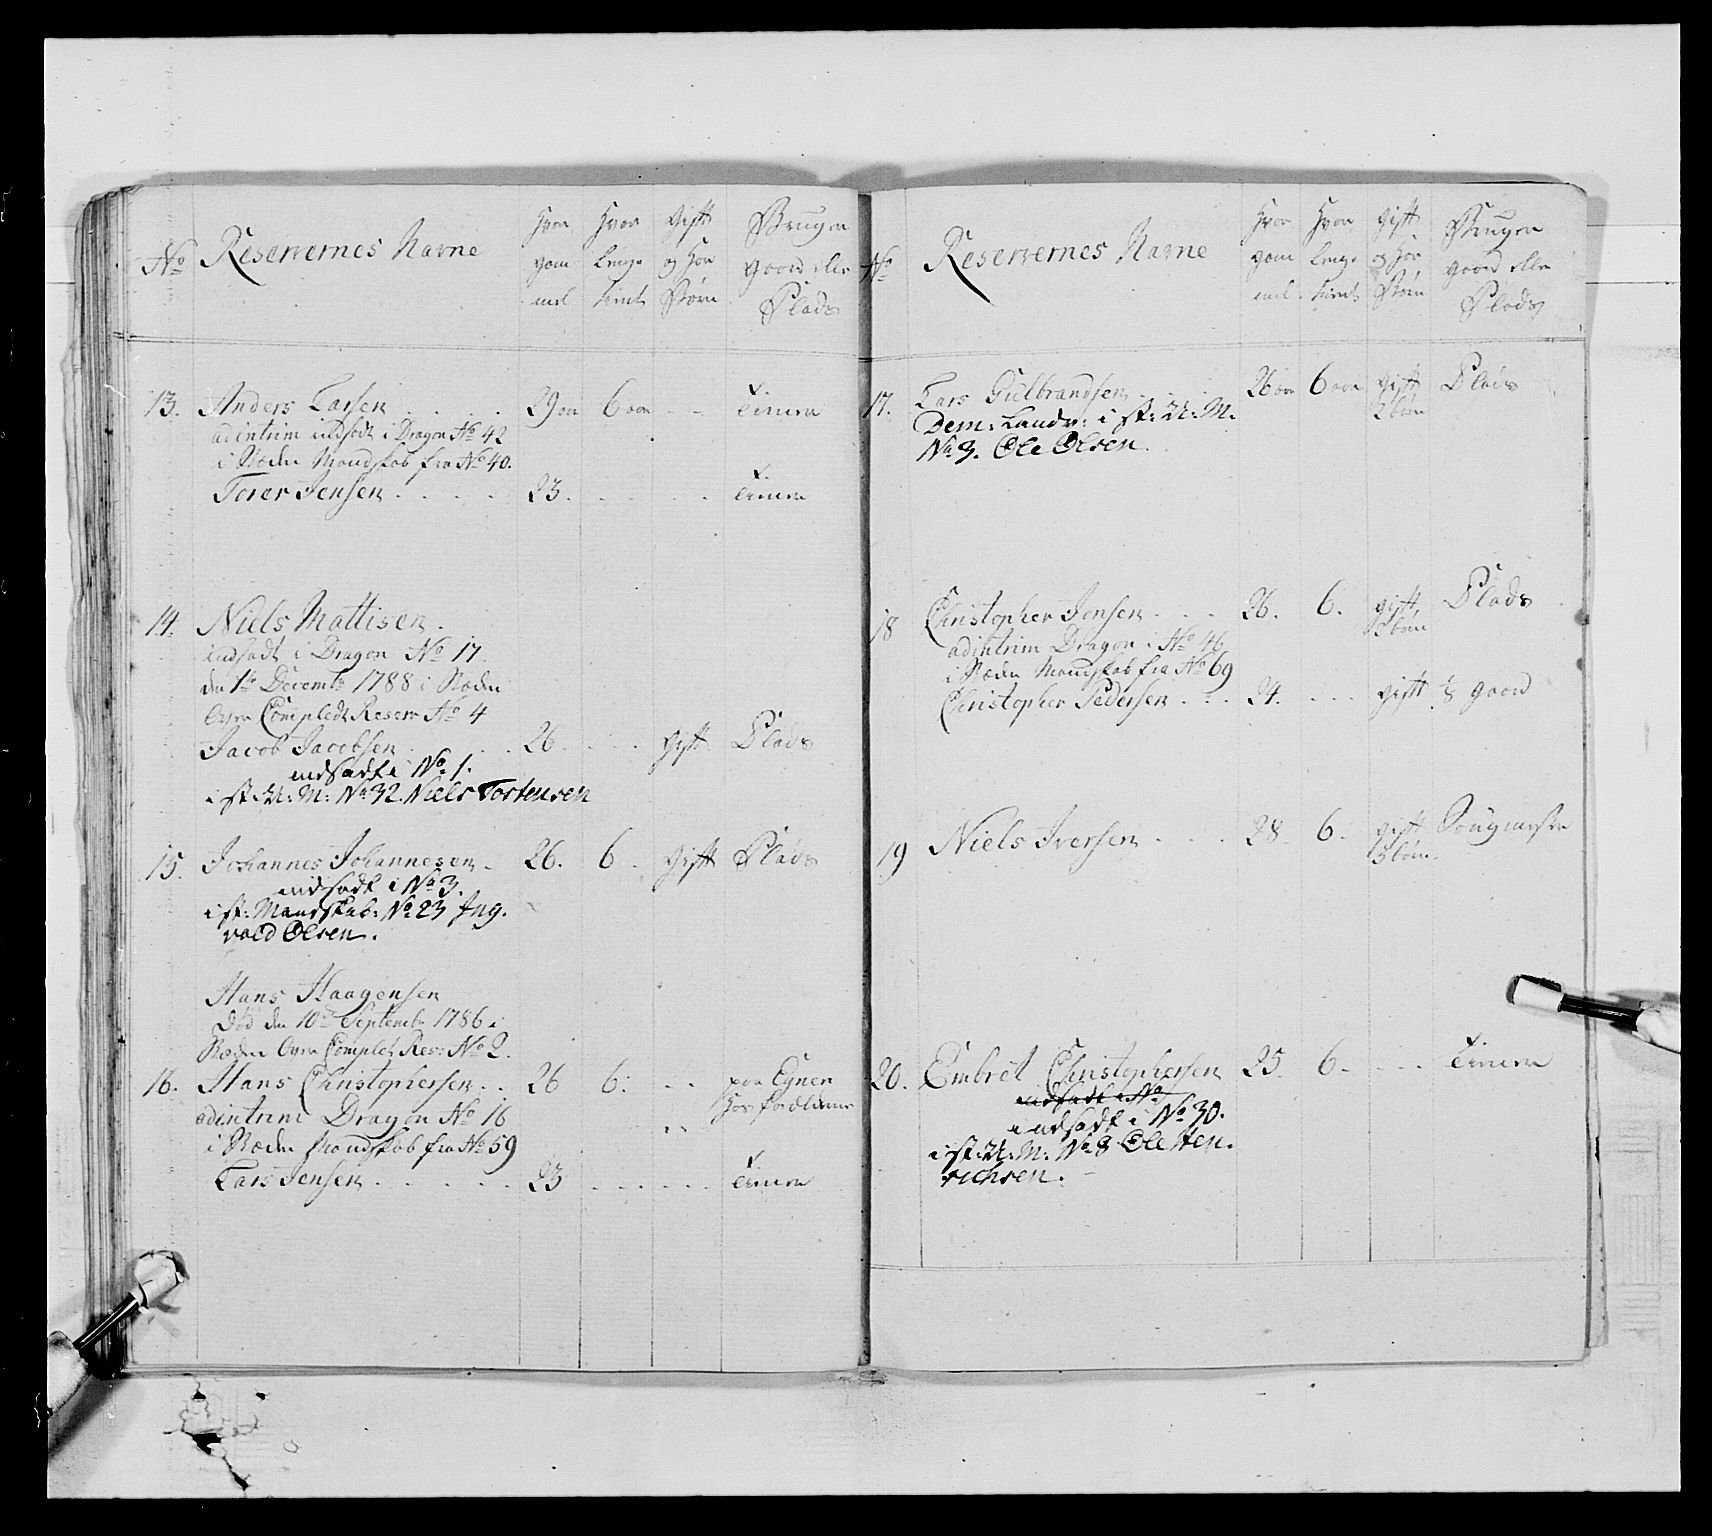 No
Reservernes Navne
Hvor gam mel
Hvor lenge tient
Gift og Hvor Børn
Bruger gaard eller Plads
13. Anders Larsen . . . . 29 aar 6 aar - - Tiener
ad intrim indsadt i Dragon No 42
i Stæden Mandskab fra No 40.
Torer Jensen . . . . 23. . . . . . Tiener
14. Niels Mattisen.
indsadt i Dragon No 17
den 1te Decembr 1788 i Stæden
Over Complet Reserv No 4
Jacob Jacobsen . . . . 26. . . . Gift Plads
indsadt i No 1.
i st: U: M: No 32. Niels Tostensen
15. Johannes Johannesen . 26. 6. Gift Plads
indsadt i No 3.
i st: Mandskab: No 23 Ing.
vold Olsen.
Hans Haagensen
Død den 10de Septembr 1786 i
Stæden Over Complet Res: No 2.
16. Hans Christophersen . . 26 6. - - paa Egnen
Hos forældrene
ad intrim Dragon No 16
i Stæden Mandskab fra No 59
Lars Jensen . . . . . 23 . . . . . . Tiener
No
Reservernes Navne
Hvor gam mel
Hvor lenge tient
Gift og Hvor Børn
Bruger gaard eller Plads
17. Lars Gulbrandsen . . . 26 aar 6 aar Gift Plads
2 børn
Dem: Landv: i st: U: M.
No 3. Ole Olsen.
18 Christopher Jonsen . . . 26. 6. gift, Plads
2 børn
ad intrim Dragon i No 46
i Stæden Mandskab fra No 69
Christopher Pedersen . . . 24. . . . gift 1/8 gaard
19 Niels Iversen . . . . 28. 6. gift
3 børn.
20. Embret Christophersen 25. 6. . . . . Tiener
indsadt i No
indsadt i No 30.
i st: U: M: No 8 Ole Hen.
richsen.